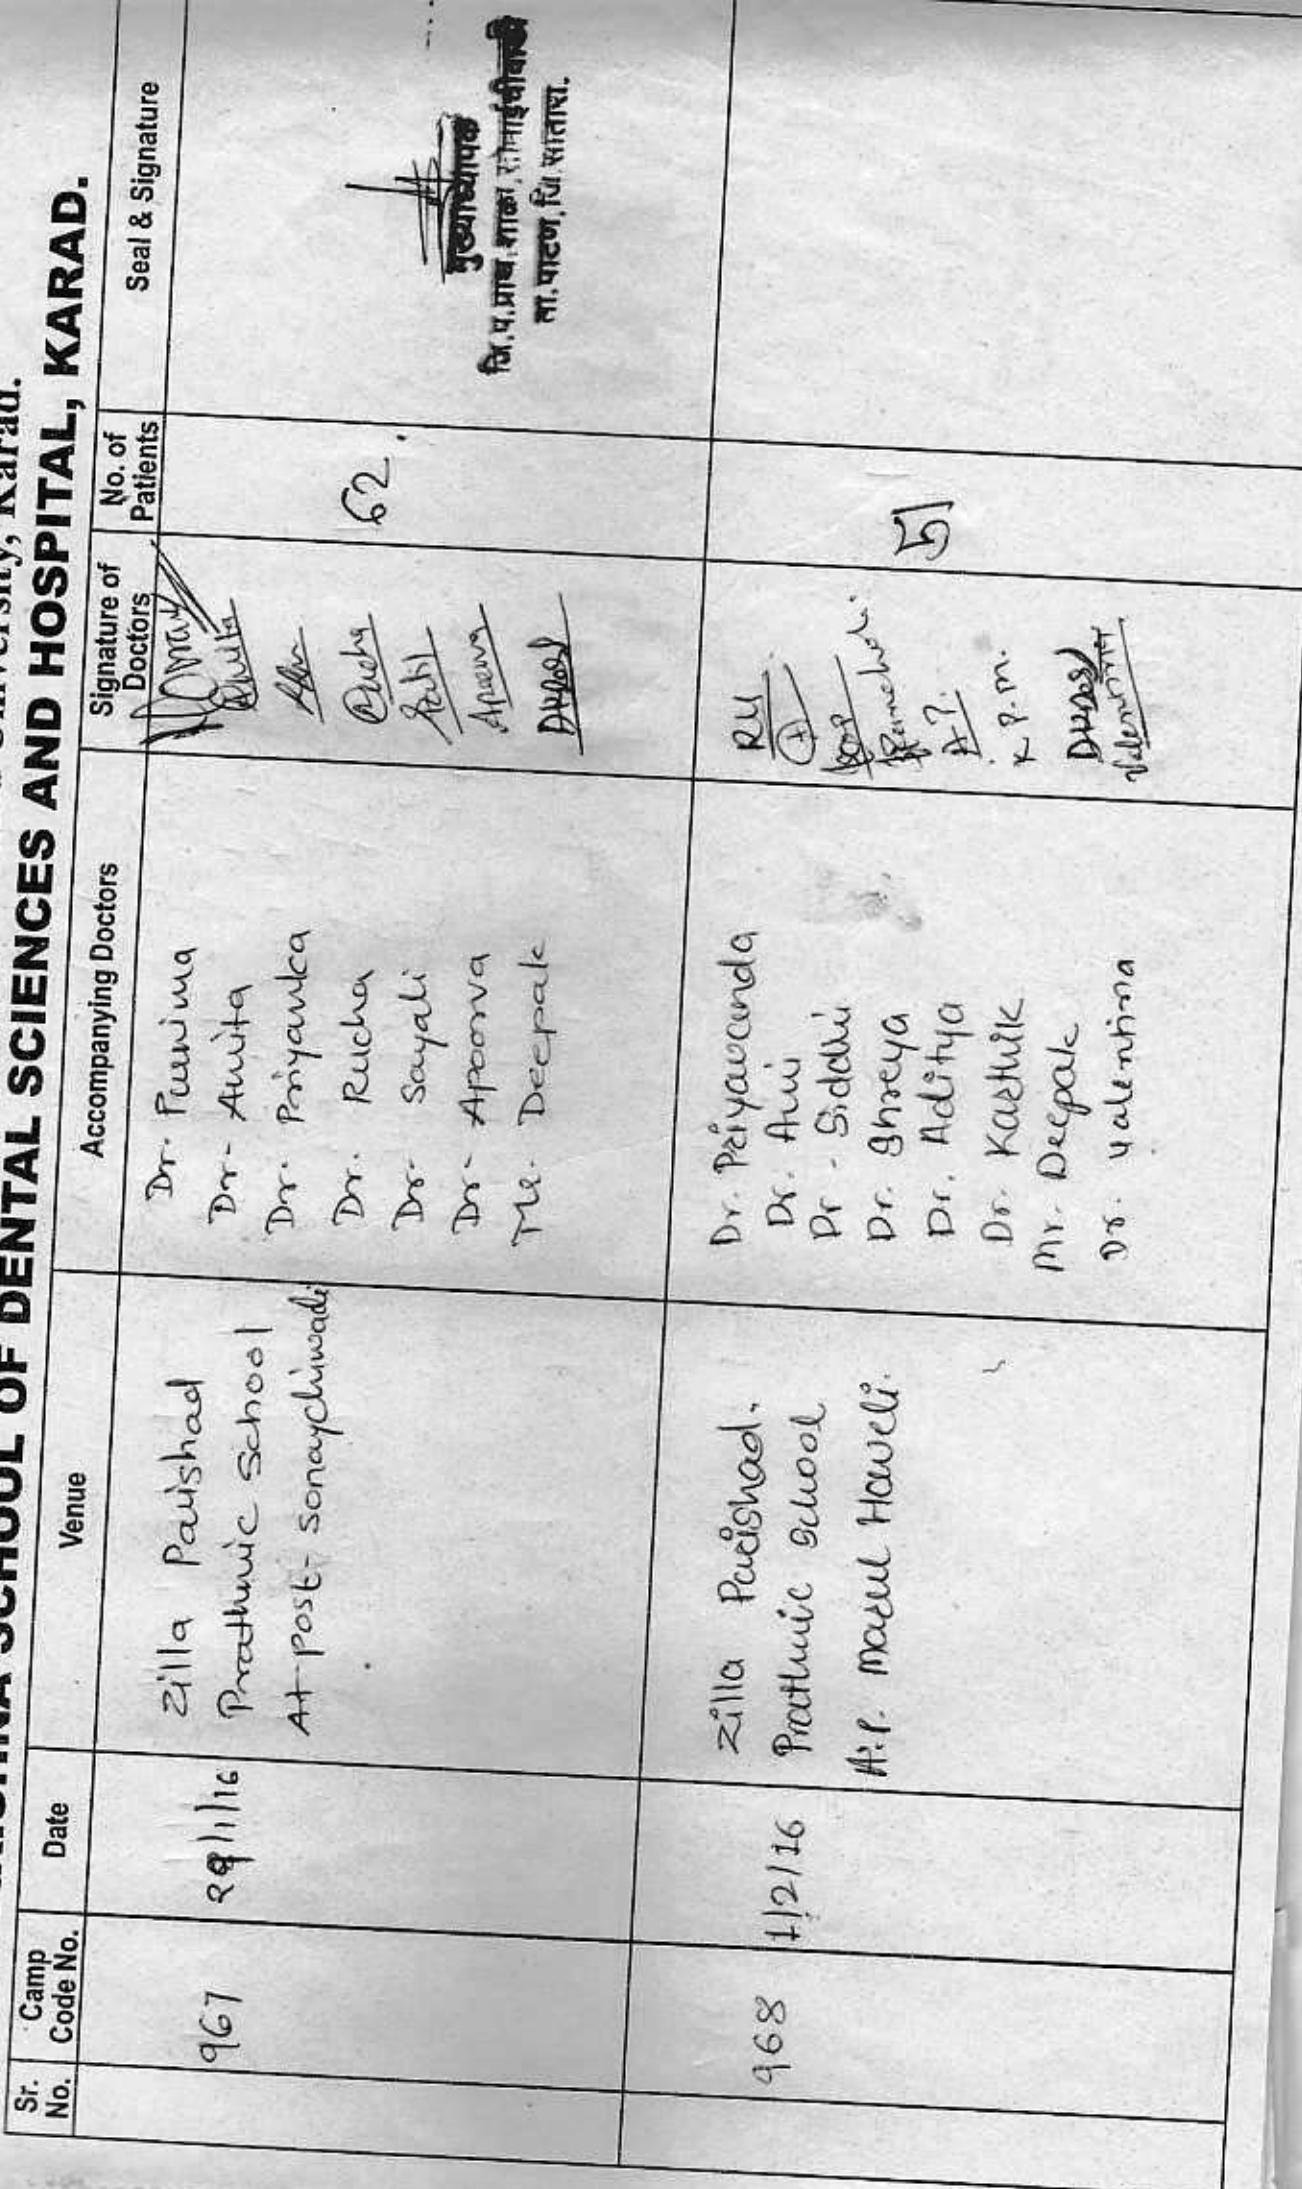 University, Karad.
SCHOOL OF DENTAL SCIENCES AND HOSPITAL, KARAD.
Sr. No.
Camp Code No.
Date
Venue
Accompanying Doctors
Signature of Doctors
No. of Patients
Seal & Signature
967
29/1/16
Zilla Parishad
Prathmic School
At post- Sonaychiwadi
Dr. Purnima
Dr- Amita
Dr. Priyanka
Dr. Rucha
Dr- Sayali
Dr- Apoorva
Mr. Deepak
Rucha
Apoorva
62.
मुख्याध्यापक
जि.प.प्राथ.शाळा,सोनाईचीवाडी
ता.पाटण,जि.सातारा.
968
1/2/16
Zilla Parishad.
Prathmic School
A.P. Marul Haveli.
Dr. Priyavanda
Dr. Siddhi
Dr. Shreya
Dr. Aditya
Dr. Karthik
Mr. Deepak
Dr. Valentina
RU
A.P.
K.P.m.
Valentina
51